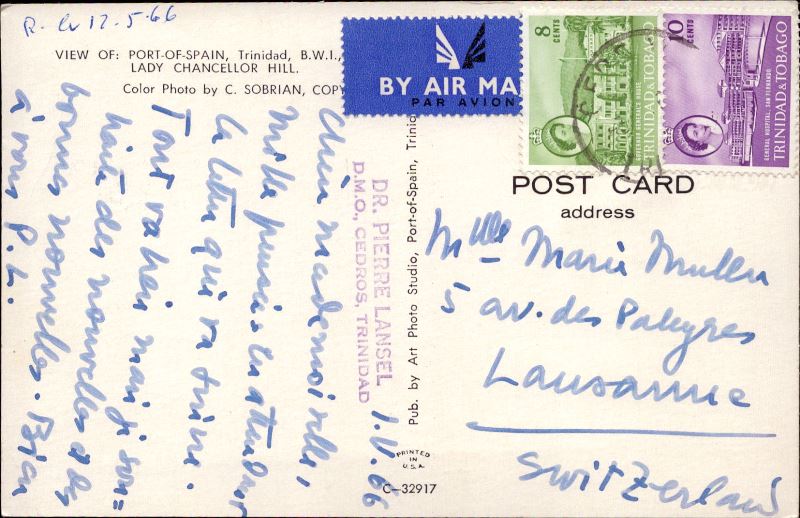 R. le 12-5-66
VIEW OF: PORT-OF-SPAIN, Trinidad, B.W.I.,
LADY CHANCELLOR HILL.
Color Photo by C. SOBRIAN, COPY
BY AIR MA
PAR AVION
8 CENTS
GOVERNOR GENERAL'S HOUSE
TRINIDAD & TOBAGO
10 CENTS
GENERAL HOSPITAL, SAN FERNANDO
TRINIDAD & TOBAGO
CEDROS
POST CARD
address
Mlle Marie Muller
5 av. des Paleyres
Lausanne
Switzerland
Pub. by Art Photo Studio, Port-of-Spain, Trinid
DR. PIERRE LANSEL
D.M.O., CEDROS, TRINIDAD
1.V.66
Chère mademoiselle,
Mille pensées en attendant
la lettre qui va suivre.
Tout va bien mais je sou=
haite des nouvelles et des
bonnes nouvelles. Bien
à vous P. L.
PRINTED
IN
U.S.A.
C-32917